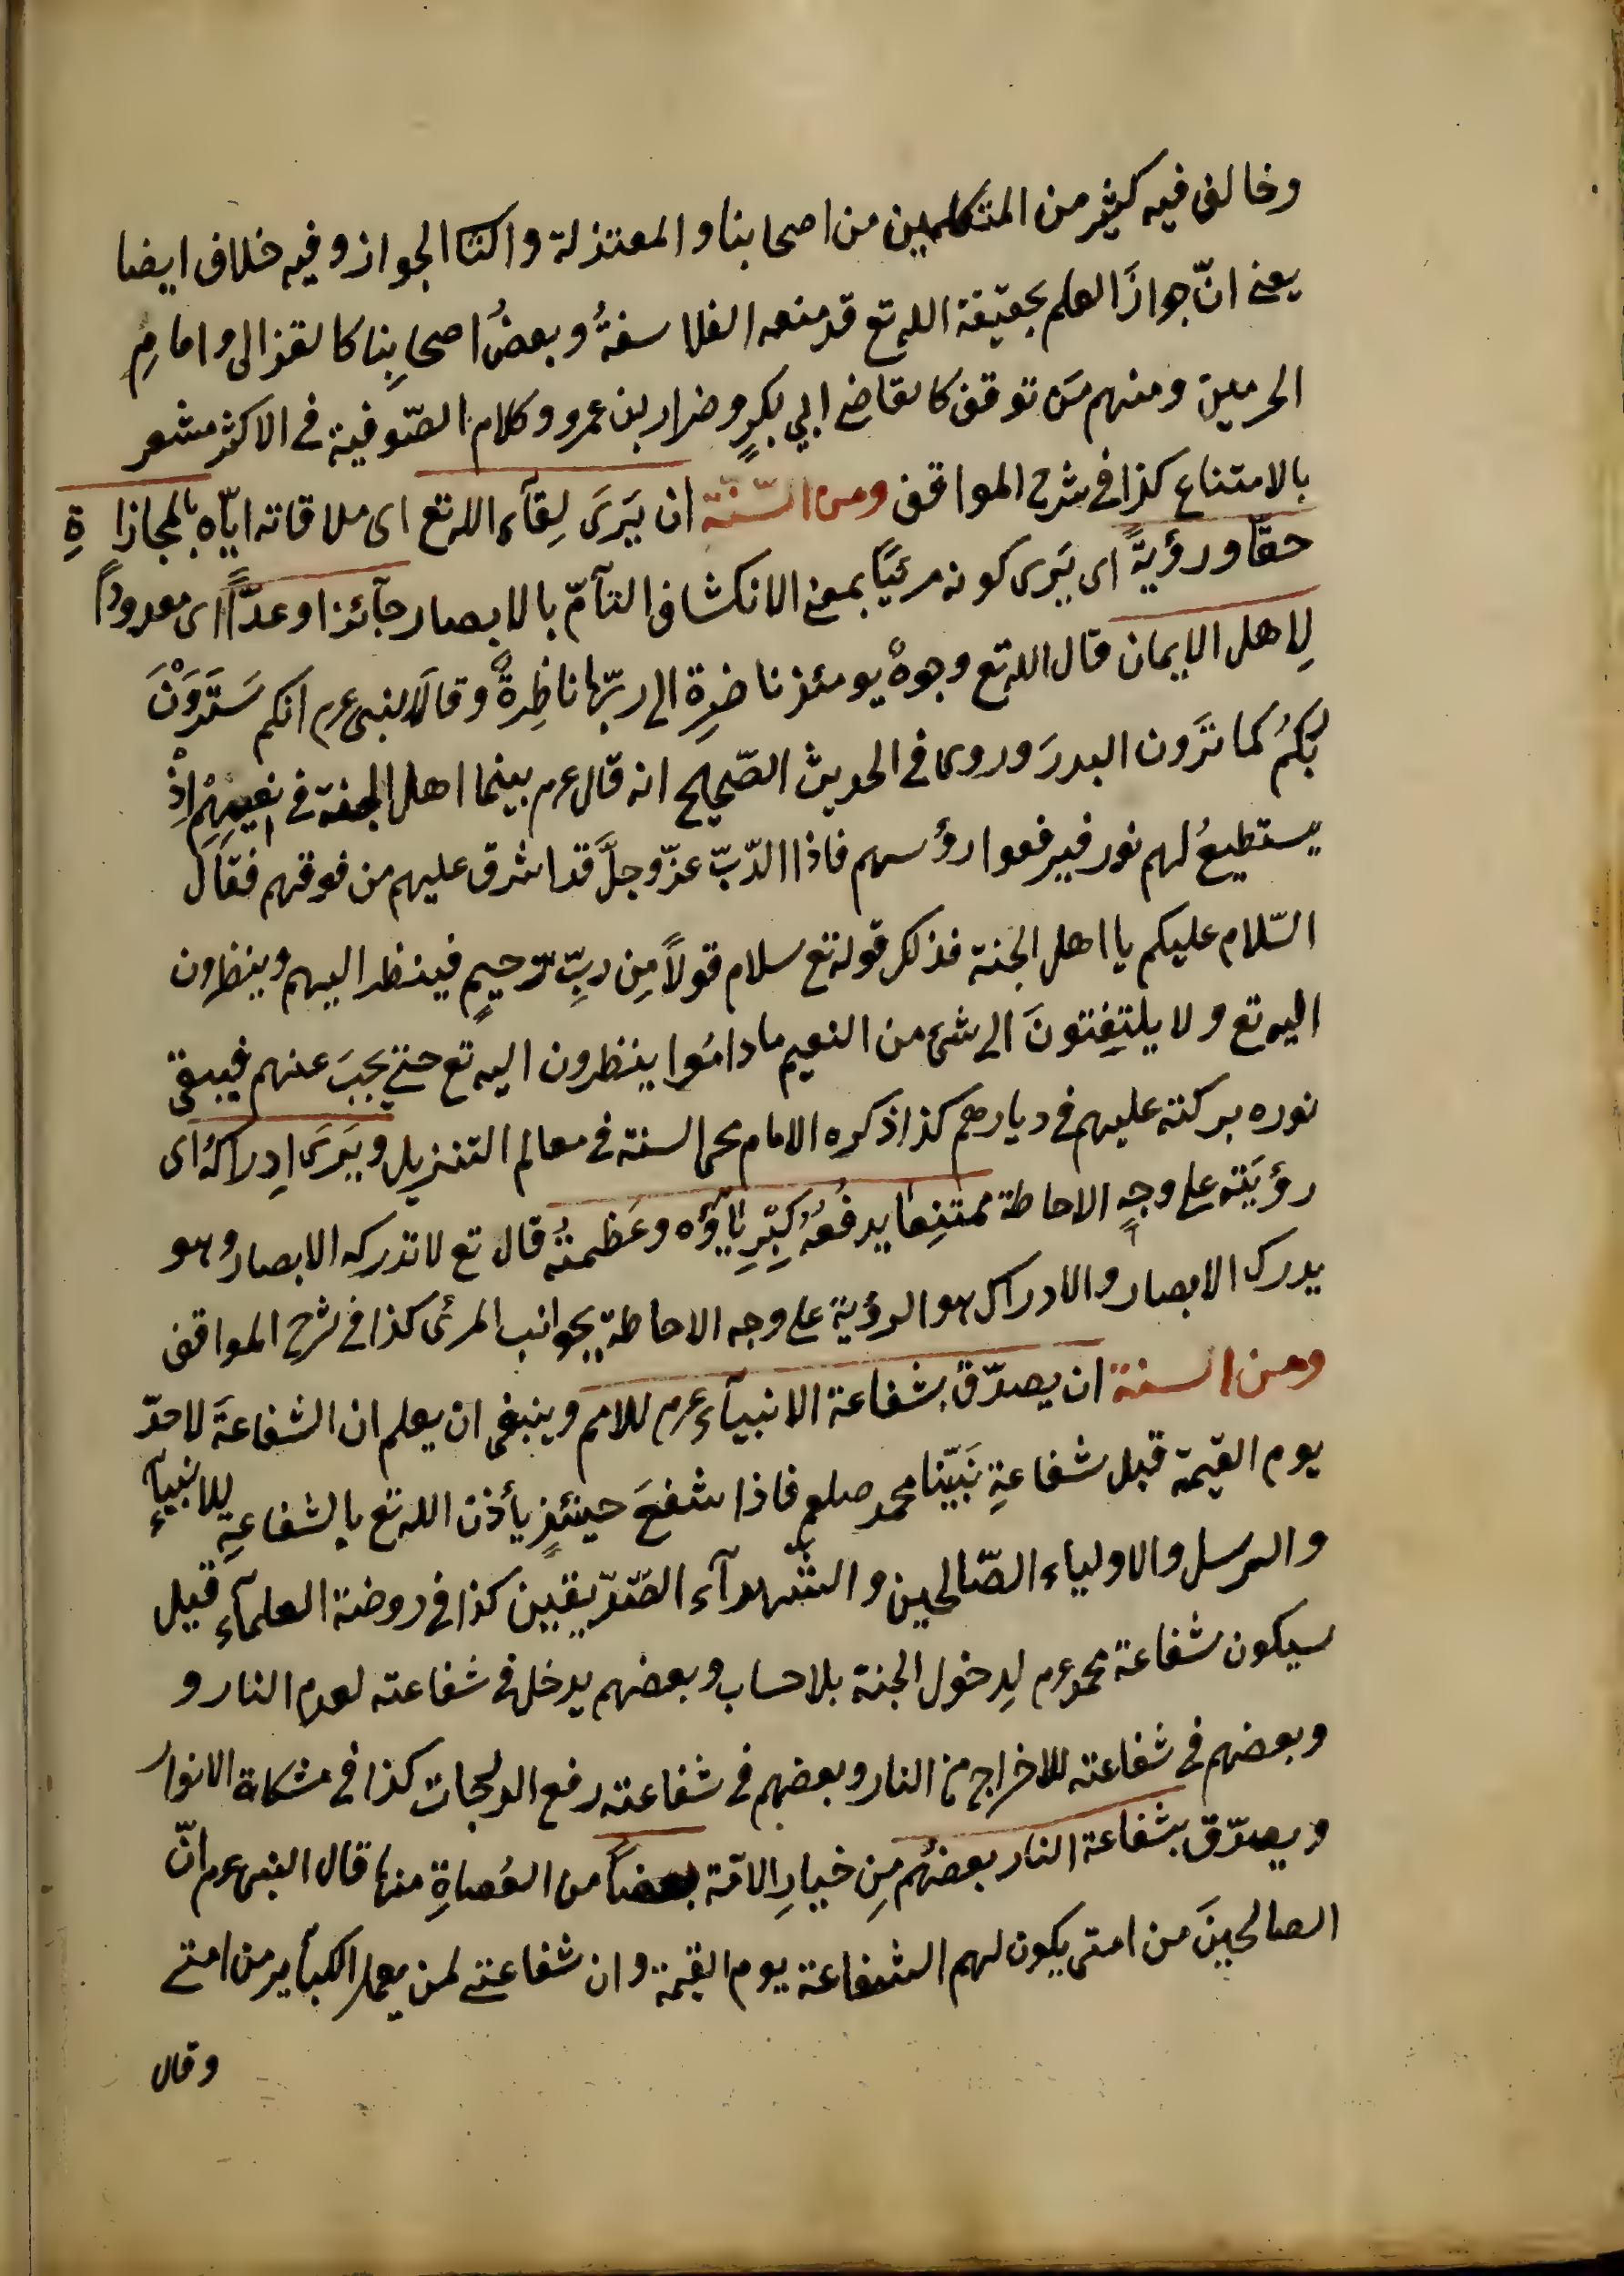 وخالف فيه كثير من المتكلمين من اصحابنا و المعتزلة و الجواز وفيه خلاف ايضا
يعنى انّ جوازَ العلم بحقيقة الله تع قد منعه الفلاسفةُ وبعضُ اصحابِنا كالغزالى و امامِ
الحرمين ومنهم مَن توقف كالقاضى ابي بكرٍ وضرار بن عمرو وكلام الصّوفية فى الاكثر مشعر
بالامتناع كذا فى شرح المواقف ومن السّنّة ان يَرَى لِقآء الله تع اى ملاقاته ايّاه بالمجازاةِ
حقّا ورؤيةً اى يَرى كونه مرئيّا بمعنى الانكشاف التآمّ بالابصار جآئزا وعدًّا اى معدوداً
لاِهل الايمان قال الله تع وجوهٌ يومئذ ناضرة الى ربّها ناظِرةٌ وقالَ النبى عرم انكم سَتَرَوْنَ
بّكُم كما تَرَون البدرَ وروى فى الحديث الصّحيح انه قال عرم بينما اهل الجنة فى نعيمِهِم اِذْ
يستطيعُ لهم نور فيرفعوا رؤسهم فاذا الرّبّ عزّ وجلَّ قد اشرق عليهم من فوقهم فقالَ
السّلام عليكم يا اهل الجنة فذلك قوله تع سلام قولاً مِن ربٍّ رّحيمٍ فينظر اليهم وينظرون
اليه تع ولا يلتفِتونَ الى شئ من النعيم ما دامُوا ينظرون اليه تع حتى يحجبَ عنهم فيبقى
نوره بركته عليهم فى ديارهم كذا ذكره الامام محى السنة فى معالم التنزيل ويَرَى اِدراكهُ اى
رؤيَته على وجهٍ الاحاطة ممتنِعا يدفعُهُ كِبْرِياؤُه وعَظمتُه قال تع لا تدركه الابصار وهو
يدرك الابصار والادراك هو الرؤية على وجه الاحاطة بجوانب المرئى كذا فى شرح المواقف
ومن السنة ان يصدّق بشفاعة الانبيآء عرم للامم وينبغى ان يعلم ان الشفاعةَ لاحدّ
يوم القيمة قبل شفاعةِ نَبيّنا محمد صلعم فاذا شفعَ حينئذٍ يأذن الله تع بالشفاعةِ للانبيآء
والرسل والاولياء الصّالحين والشّهدآء الصّدّيقين كذا فى روضة العلمآء قيل
سيكون شفاعة محمد عرم لدخول الجنة بلا حساب وبعضهم يدخل فى شفاعته لعدم النار و
وبعضهم فى شفاعته للاخراج من النار وبعضهم فى شفاعته رفع الدرجات كذا فى مشكاة الانوار
ويصدّق بشفاعة النار بعضُهم مِن خيارِ الامّة بعضاً من العُصاةِ منها قال النبى عرم انّ
الصالحينَ من امتى يكون لهم الشفاعة يوم القيمة وان شفاعتى لمن يعمل الكبآير من امتى
وقال